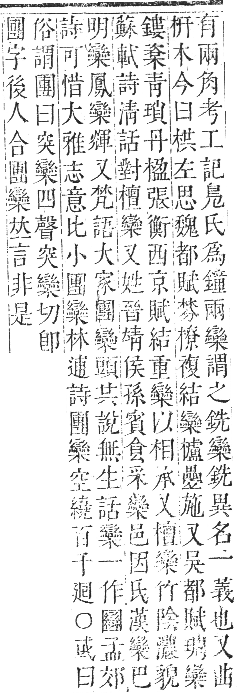 有兩角考工記鳧氏爲鐘兩欒謂之銑欒銑異名一義也又曲
枅木今曰栱左思魏都賦棼橑複結欒櫨疊施又吳都賦琱欒
鏤楶靑瑣丹楹張衡西京賦結重欒以相承又檀欒竹陰濃貌
蘇軾詩淸話對檀欒又姓晉靖侯孫賓食采欒邑因氏漢欒巴
明欒鳳欒煇又梵語大家團欒頭共說無生話欒一作圞孟郊
詩可惜大雅志意比小團欒林逋詩團欒空繞百千迴○或曰
俗謂團曰突欒四聲突欒切卽
團字後人合團欒𠀤言非是